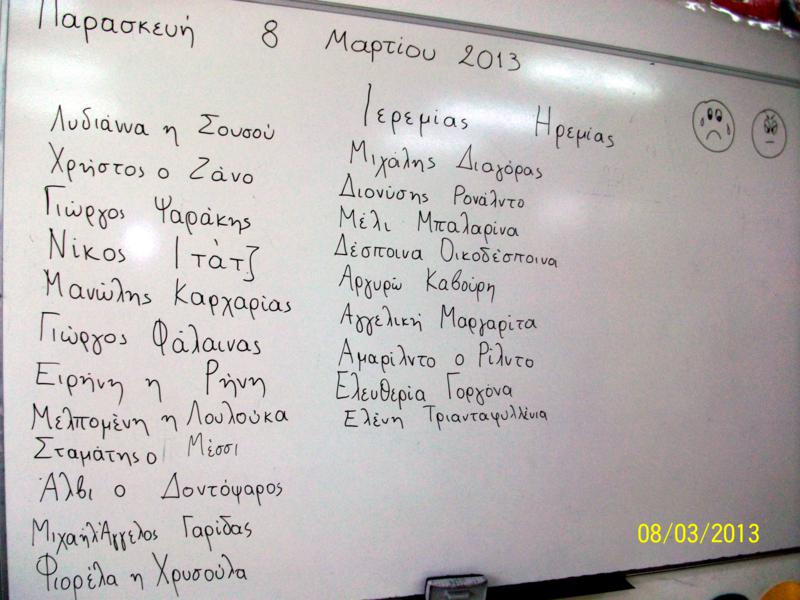 Παρασκευή 8 Μαρτίου 2013
Λυδιάννα η Σουσού
Χρήστος ο Ζάνο
Γιώργος Ψαράκης
Νίκος Ιτάτζ
Μανώλης Καρχαρίας
Γιώργος Φάλαινας
Ειρήνη η Ρήνη
Μελπομένη η Λουλούκα
Σταμάτης ο Μέσσι
Άλβι ο Δοντόψαρος
Μιχαήλ Άγγελος Γαρίδας
Φιορέλα η Χρυσούλα
Ιερεμίας Ηρεμίας
Μιχάλης Διαγόρας
Διονύσης Ρονάλντο
Μέλι Μπαλαρίνα
Δέσποινα Οικοδέσποινα
Αργυρώ Καβούρη
Αγγελική Μαργαρίτα
Αμαρίλντο ο Ρίλντο
Ελευθερία Γοργόνα
Ελένη Τριανταφυλλένια
08/03/2013